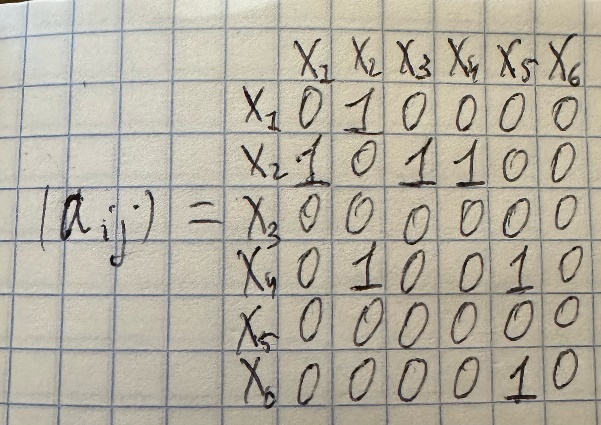 X₁ X₂ X₃ X₄ X₅ X₆
X₁ 0 1 0 0 0 0
X₂ 1 0 1 1 0 0
(aᵢⱼ) = X₃ 0 0 0 0 0 0
X₄ 0 1 0 0 1 0
X₅ 0 0 0 0 0 0
X₆ 0 0 0 0 1 0